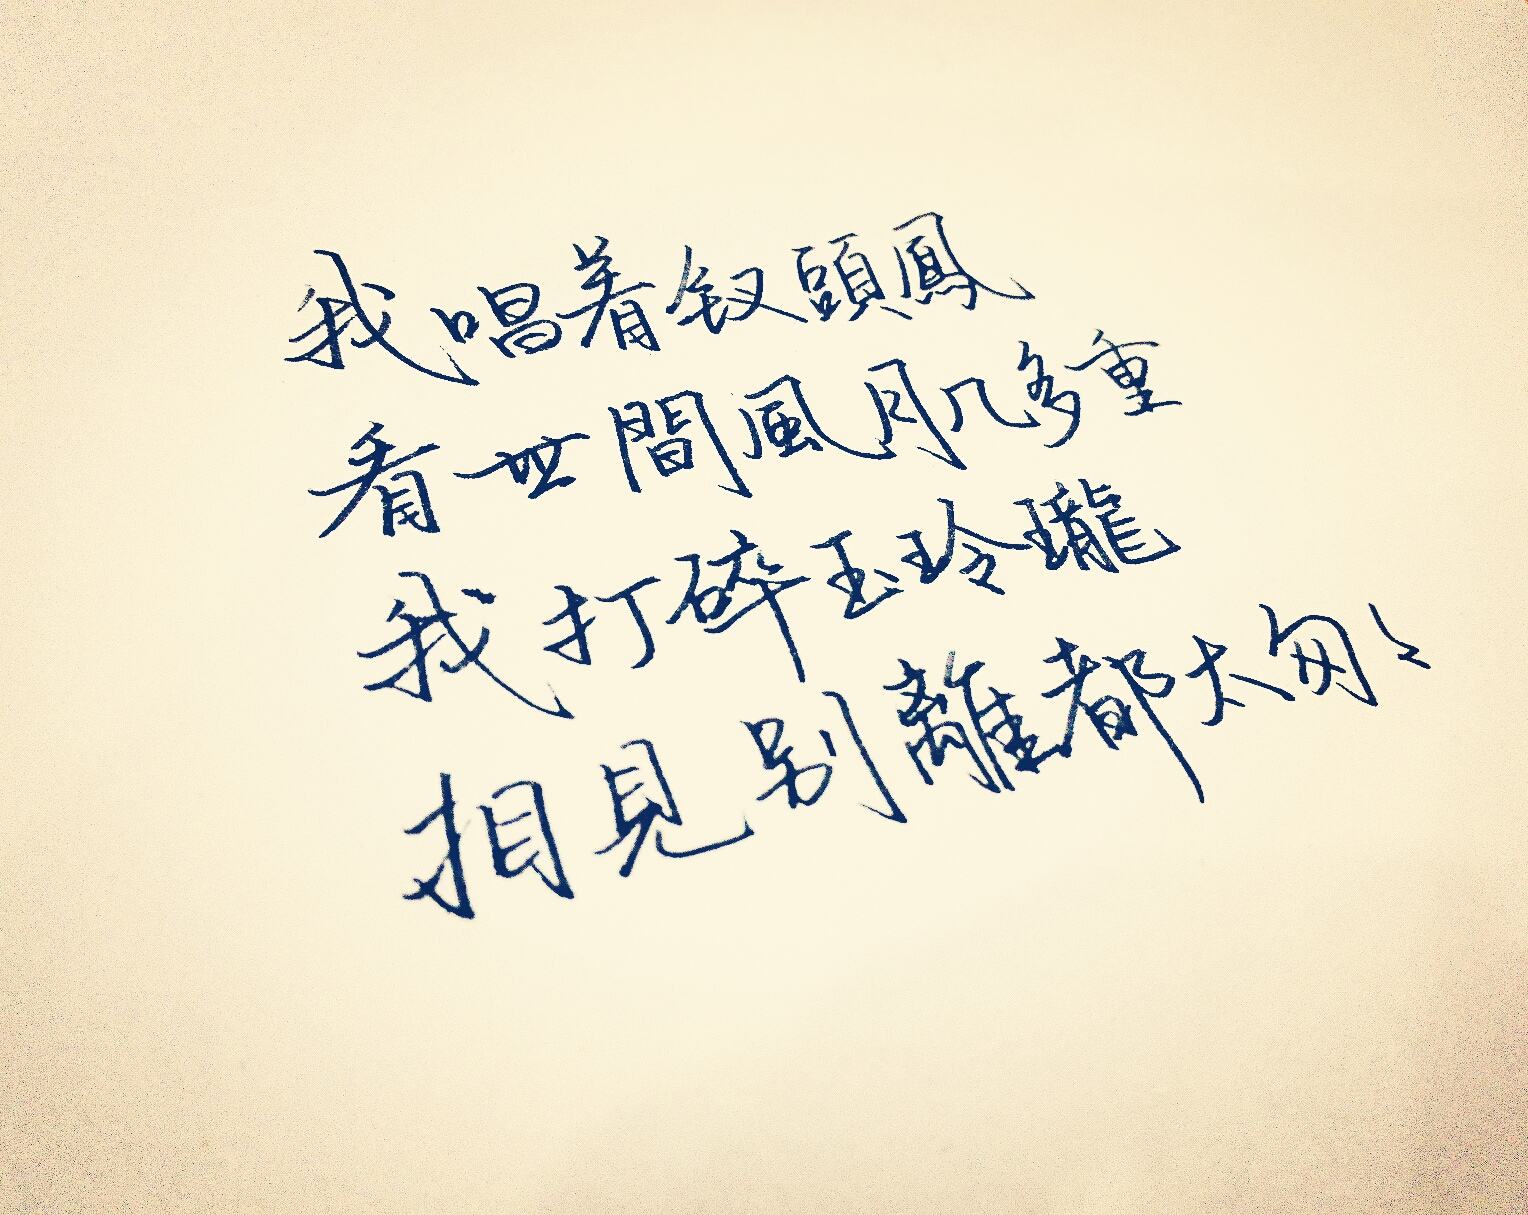 我唱着钗頭鳳
看世間風月几多重
我打碎玉玲瓏
相見别離都太匆〻